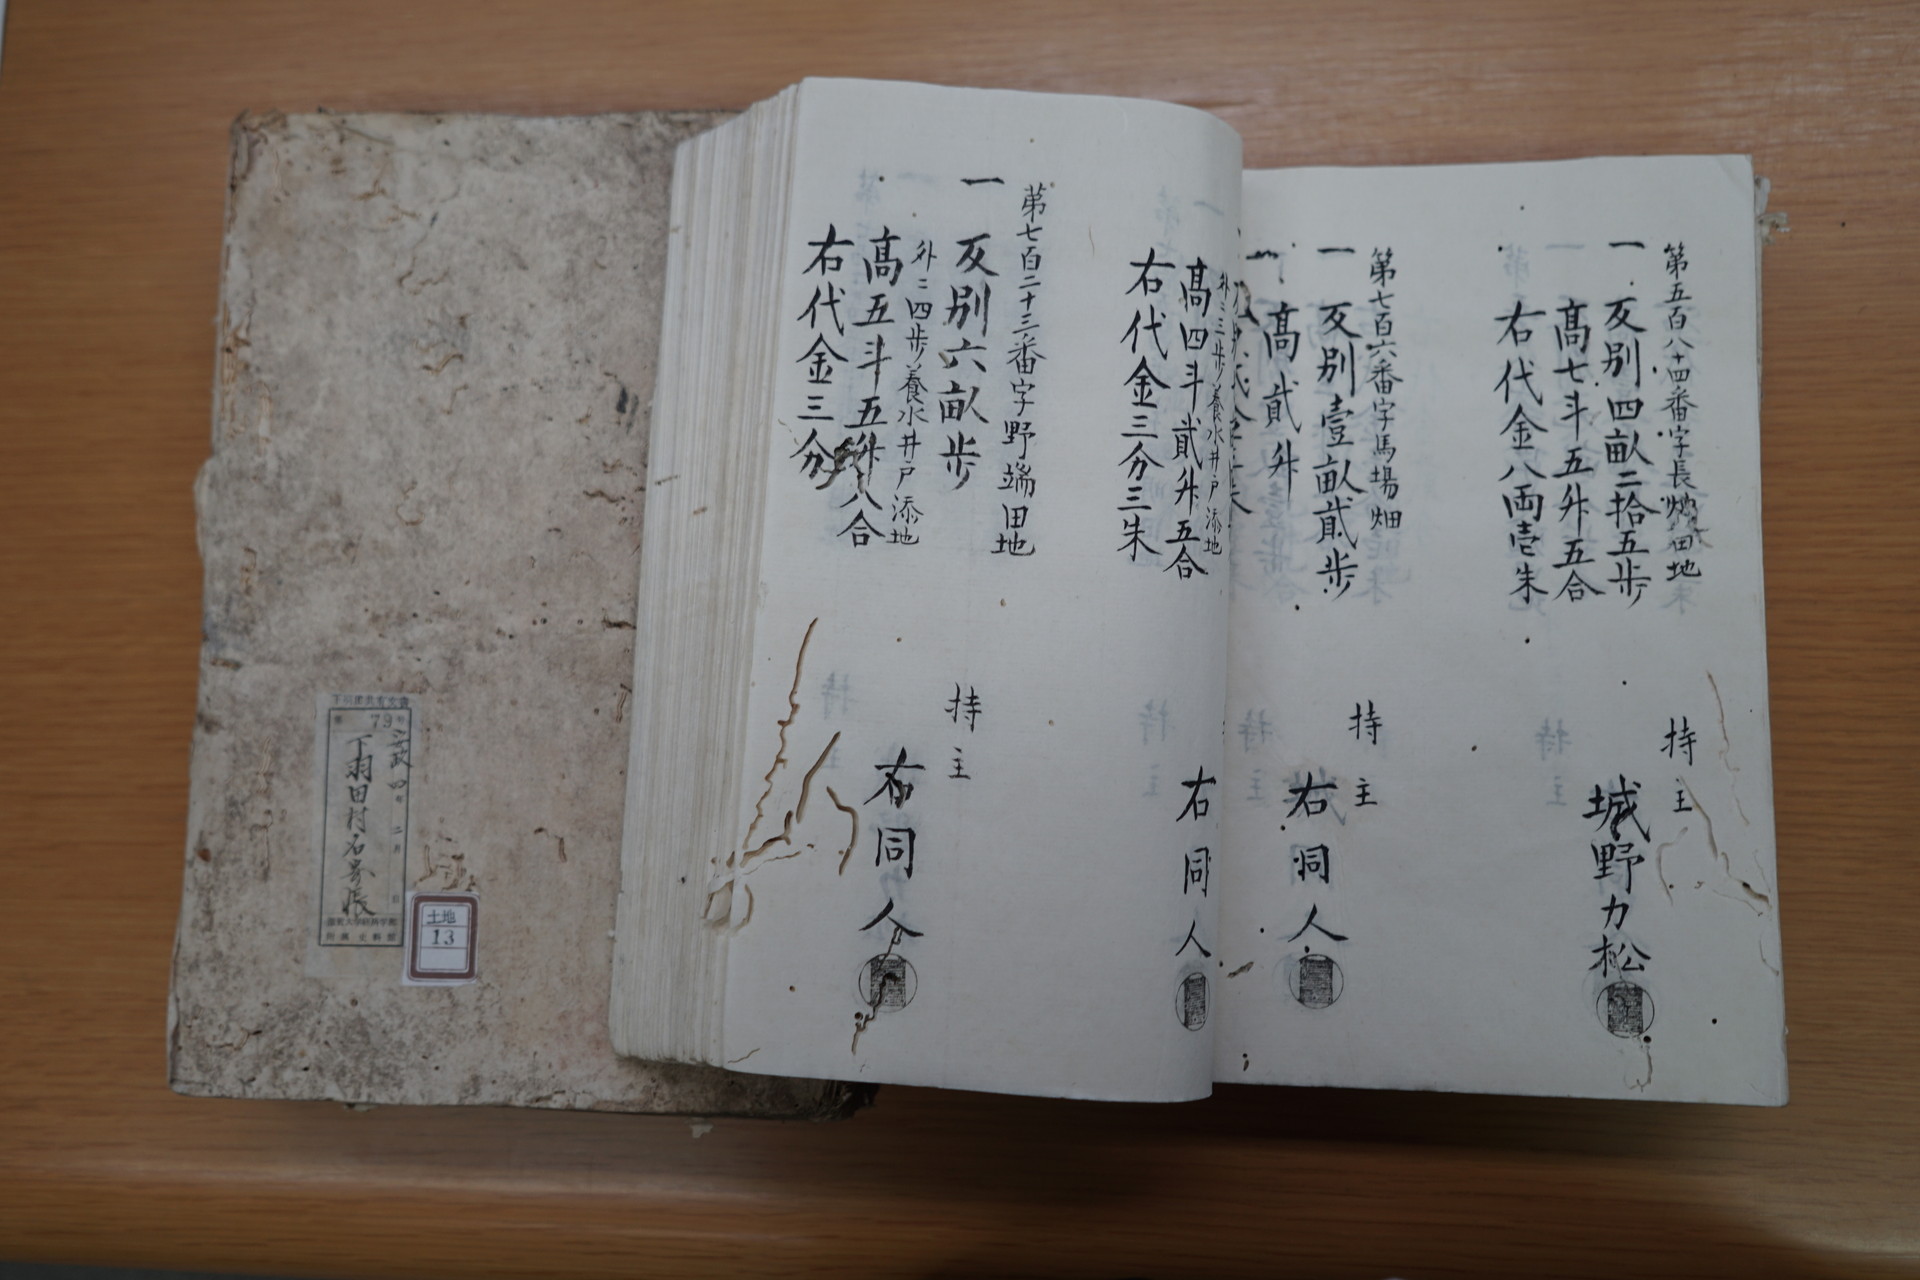 第五百八十四番字長畑田地
一 反別四畝二拾五歩
高七斗五升五合
右代金八両壱朱
持主
城野力松
第七百六番字馬場畑
一 反別壹畝貳歩
高貳升
持主
右同人
外ニ三歩養水井戸添地
高四斗貳升五合
右代金三分三朱
右同人
第七百二十三番字野端田地
一 反別六畝歩
外ニ四歩養水井戸添地
高五斗五升八合
右代金三分
持主
右同人
79
四年二月 日
下羽田村名寄帳
土地
13